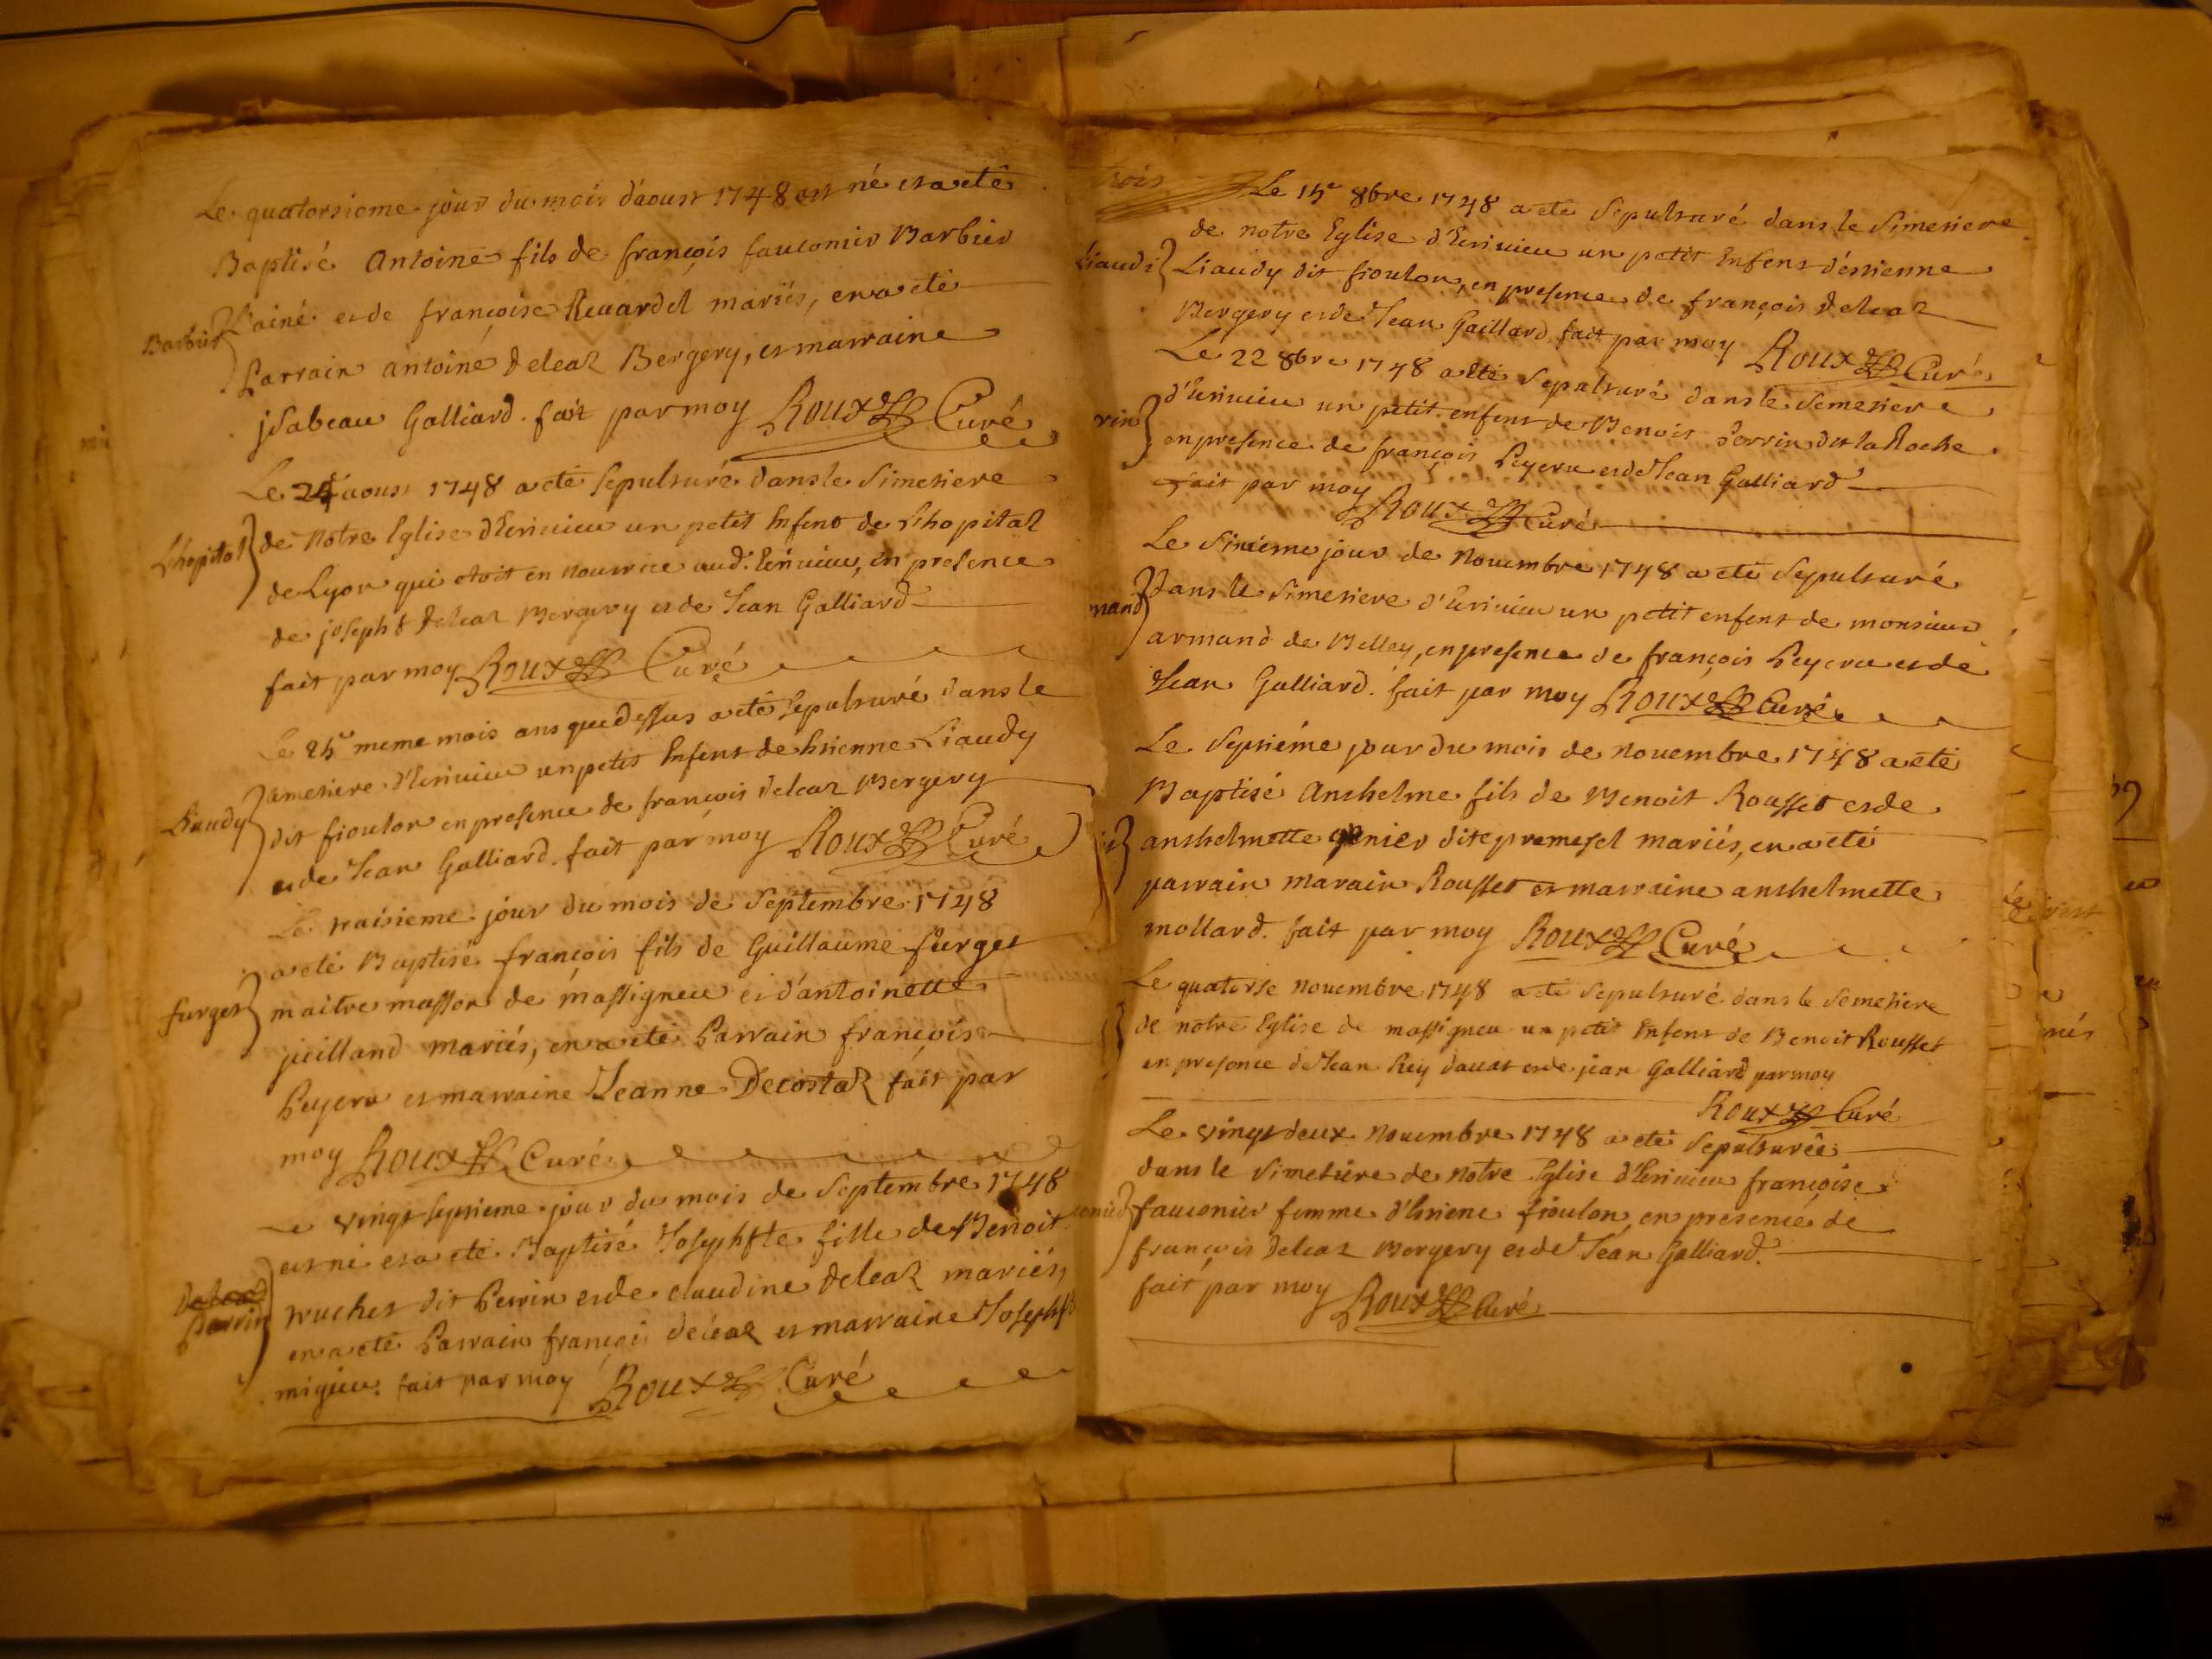 Le quatorsieme jour du mois d'aoust 1748 est né et a eté
Baptisé Antoine fils de françois fauconier Barbier
Barbier
L'ainé et de françoise Reuardel mariés, en a eté
Parrain antoine deleaz Bergery, et marraine
jsabeau Galliard. fait par moy Roux Curé
Le 24 aoust 1748 a eté sepulturé dans le simetiere
Lhopital
de notre Eglise d'Eriuieu un petit Enfent de Lhopital
de Lyon qui etoit en nourrice aud. Eriuieu, en presence
de joseph deleaz Bergery et de Jean Galliard
fait par moy Roux Curé
Le 25e meme mois ans que dessus a eté sepulturé dans le
simetiere d'Eriuieu un petit Enfent de Etienne Liaudy
Liaudy
dit fioulon en presence de françois deleaz Bergery
et de Jean Galliard. fait par moy Roux Curé
Le traisieme jour du mois de Septembre 1748
a eté Baptisé françois fils de Guillaume furget
furget
maitre masson de massigneu et d'antoinette
juilland mariés, en a eté Parrain françois
Peyeru et marraine Jeanne Decostaz fait par
moy Roux Curé
Le vingt septieme jour du mois de Septembre 1748
est né et a eté Baptisé Josephte fille de Benoit
Perrin
truchet dit Perrin et de claudine deleaz mariés,
en a eté Parrain françois deleaz et marraine Joseph
migieu. fait par moy Roux Curé
Le 15e 8bre 1748 a eté sepulturé dans le simetiere
de notre Eglise d'Eriuieu un petit Enfent d'etienne
Liaudi
Liaudy dit fioulon, en presence de françois deleaz
Bergery et de Jean Gaillard fait par moy Roux Curé
Le 22 8bre 1748 a eté sepulturé dans le semetiere
d'Eriuieu un petit enfent de Benoit Perrin dit la Roche
rin
en presence de françois Peyeru et de Jean Galliard
fait par moy Roux Curé
Le sixieme jour de Nouembre 1748 a eté sepulturé
mand
Dans le simetiere d'Eriuieu un petit enfent de monsieur
armand de Belley, en presence de françois Peyeru et de
Jean Galliard. fait par moy Roux Curé
Le septiéme jour du mois de nouembre 1748 a eté
Baptisé Anthelme fils de Benoit Rousset et de
anthelmette genier dite premesel mariés, en a eté
parrain marain Rousset et marraine anthelmette
mollard. fait par moy Roux Curé
Le quatorse nouembre 1748 a eté sepulturé dans le semetiere
de notre Eglise de massigneu un petit Enfent de Benoit Rousset
en presence de Jean Rey dauat et de jean Galliard par moy
Roux Curé
Le vingt deux Nouembre 1748 a eté sepulturée
dans le simetiere de notre Eglise d'Eriuieu françoise
fauconier femme d'Etiene fioulon, en presence de
françois deleaz Bergery et de Jean Galliard.
fait par moy Roux Curé